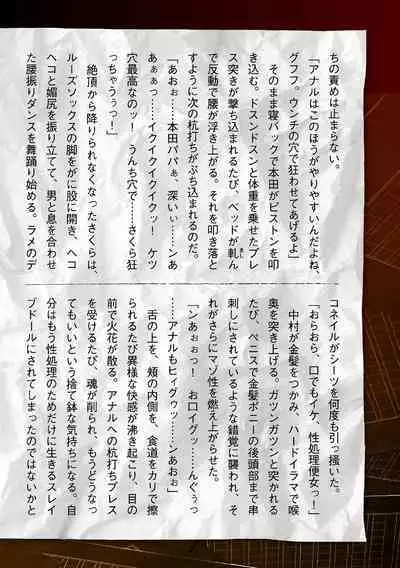 ちの責めは止まらない。
「アナルはこのほうがやりやすいんだよね、
グフフ。ウンチの穴で狂わせてあげるよ」
そのまま寝バックで本田がピストンを叩
き込む。ドスンドスンと体重を乗せたプレ
ス突きが撃ち込まれるたび、ベッドが軋ん
で反動で腰が浮き上がる。それを叩き落と
すように次の杭打ちがぶち込まれるのだ。
「あおぉ……本田パパぁ、深いぃ……ンあ
あぁぁっ……イクイクイクイクッ！　ケツ
穴最高なのっ！　うんち穴で……さくら狂
っちゃうぅっ！」
絶頂から降りられなくなったさくらは、
ルーズソックスの脚をがに股に開き、ヘコ
ヘコと媚尻を振り立てて、男と息を合わせ
た腰振りダンスを舞踊り始める。ラメのデ
コネイルがシーツを何度も引っ掻いた。
「おらおら、口でもイケ、性処理便女っ！」
中村が金髪をつかみ、ハードイラマで喉
奥を突き上げる。ガツンガツンと突かれる
たび、ペニスで金髪ポニーの後頭部まで串
刺しにされているような錯覚に襲われ、そ
れがさらにマゾ性を燃え上がらせた。
「ンあぉぉっ！　お口イグッ……んぐぅっ
……アナルもヒィグゥッ……ンあおぉ」
舌の上を、頬の内側を、食道をカリで擦
られるたび異様な快感が沸き起こり、目の
前で火花が散る。アナルへの杭打ちプレス
を受けるたび、魂が削られ、もうどうなっ
てもいいという捨て鉢な気持ちになる。自
分はもう性処理のためだけに生きるスレイ
ブドールにされてしまったのではないかと